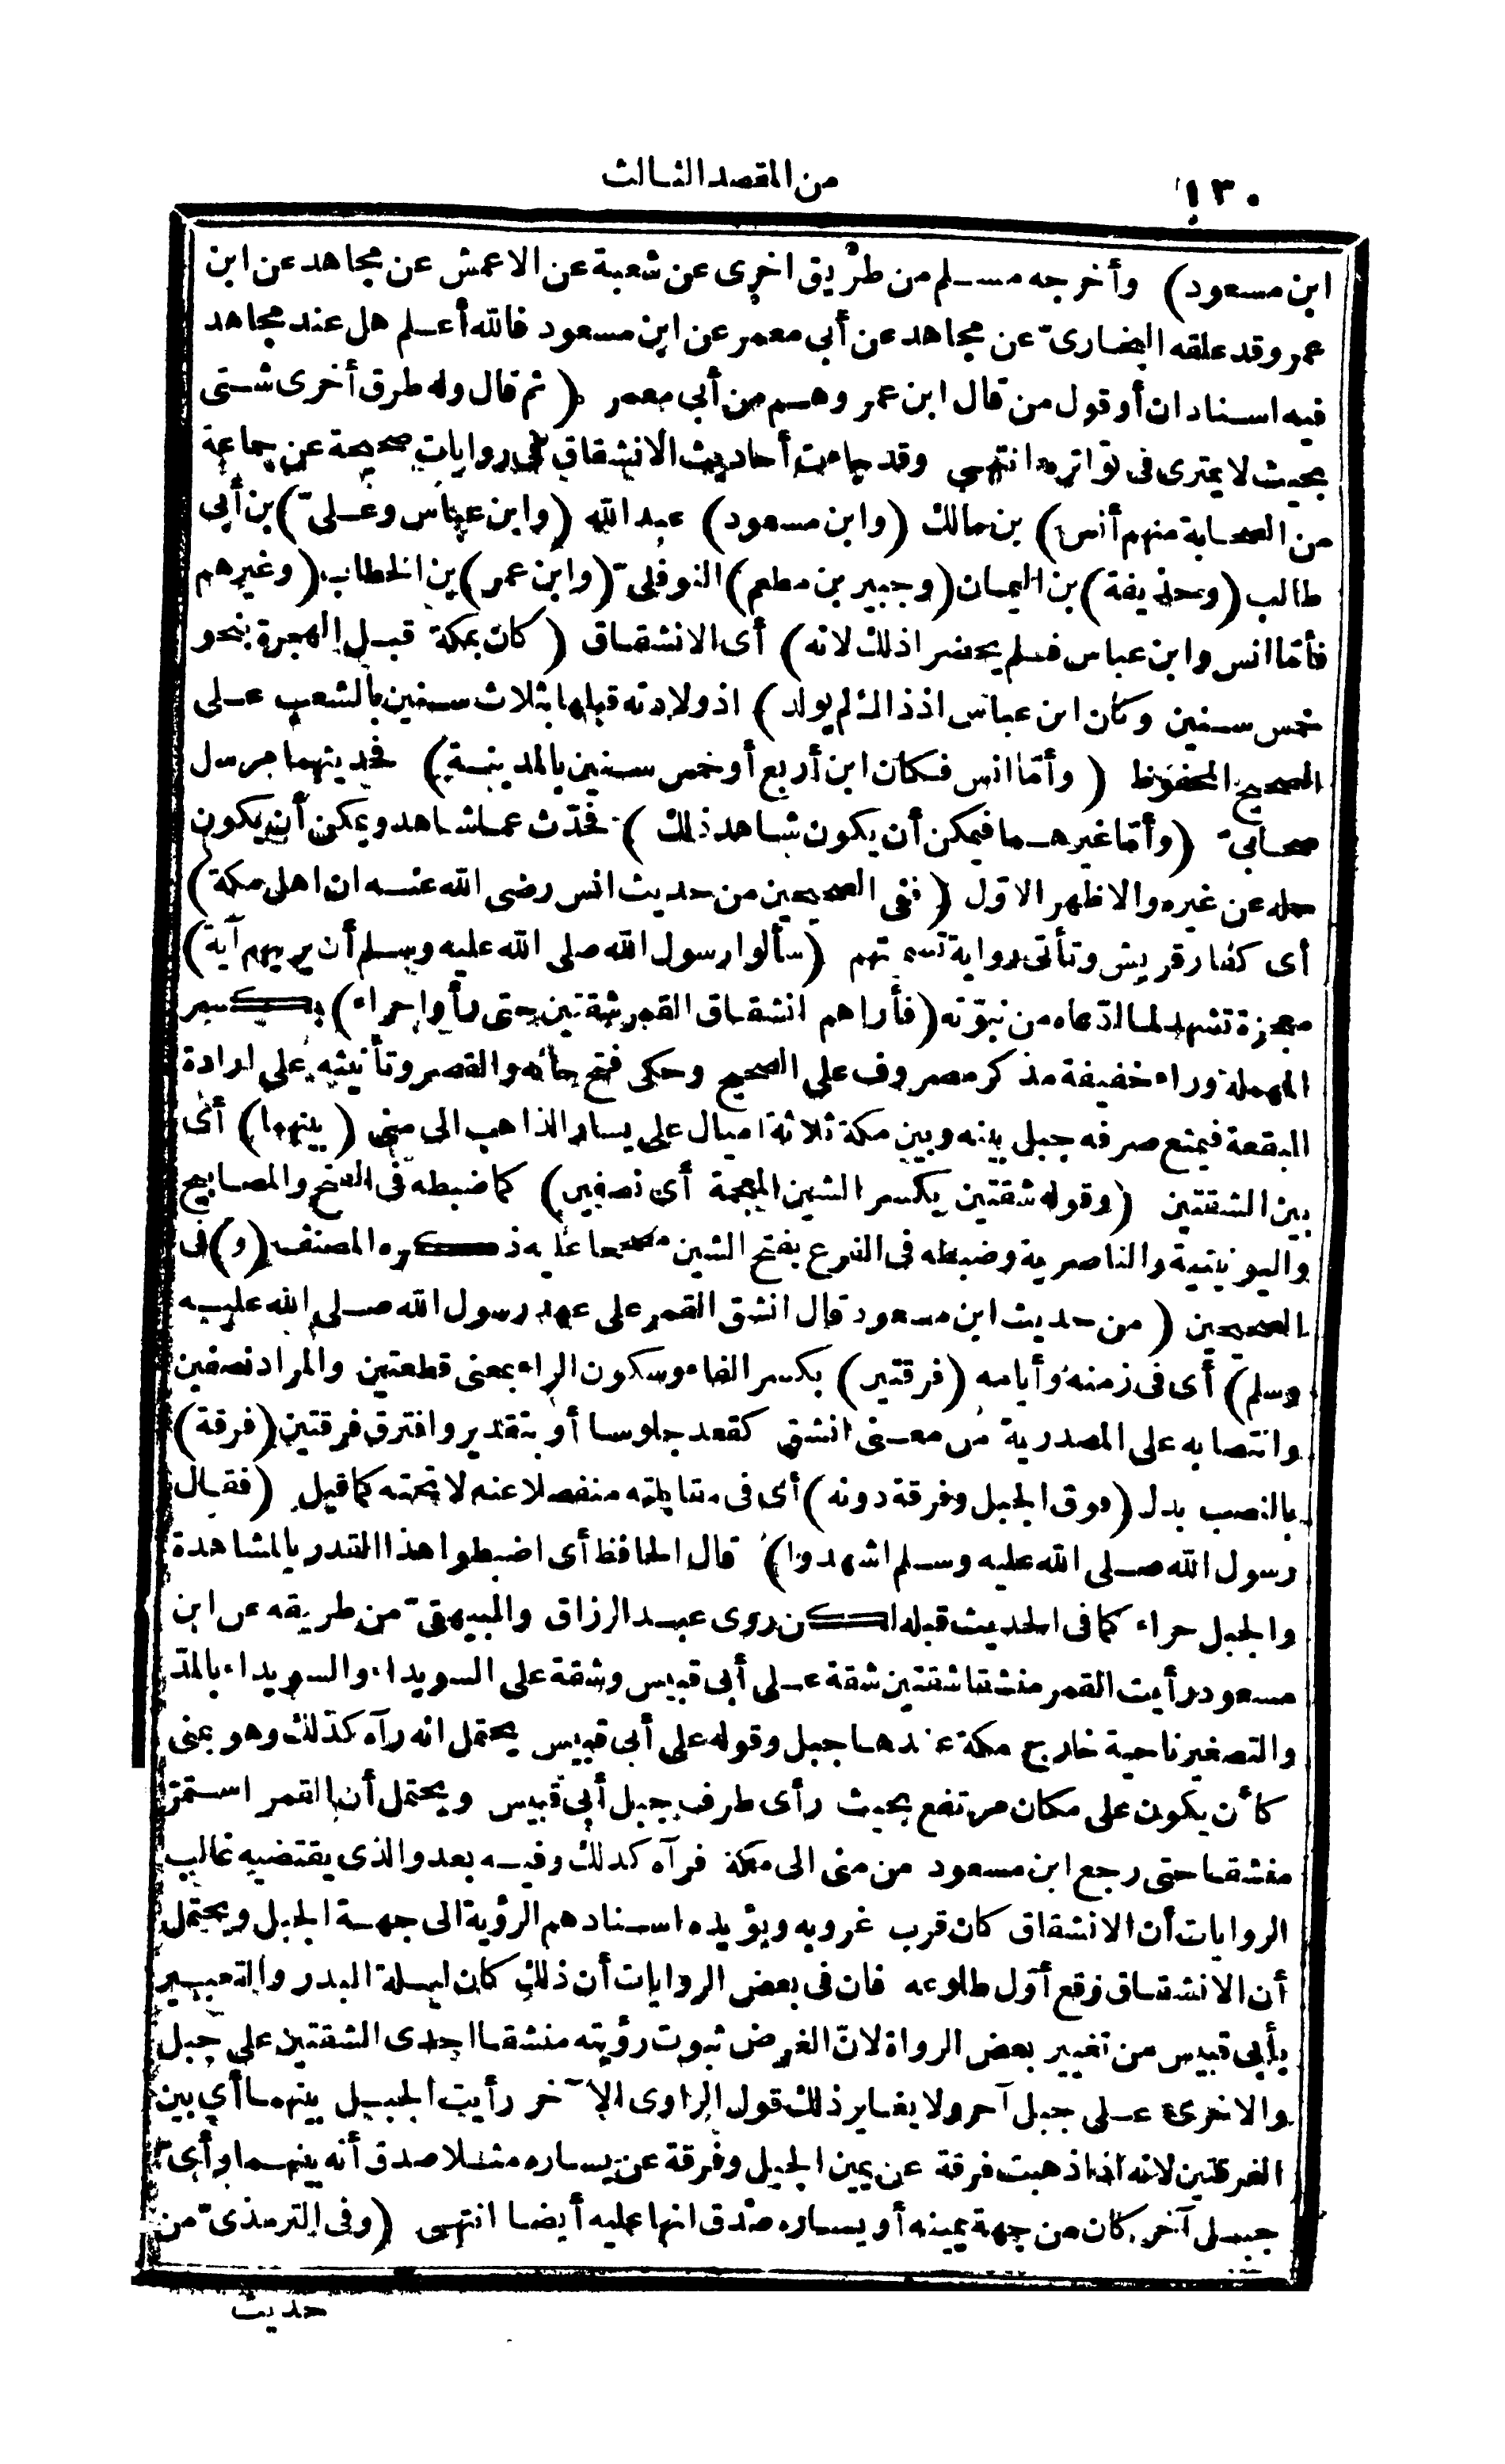 ١٣٠
من المقصد الثالث
ابن مسعود) وأخرجه مسلم من طريق اخرى عن شعبة عن الاعمش عن مجاهد عن ابن
عمر وقد علقه البخارىّ عن مجاهد عن أبى معمر عن ابن مسعود فالله أعلم هل عند مجاهد
فيه اسنادان أو قول من قال ابن عمر وهم من أبى معمر (ثم قال وله طرق أخرى شتى
بحيث لا يمترى فى تواتره انتهى وقد جاءت أحاديث الانشقاق فى روايات صحيحة عن جماعة
من الصحابة منهم أنس) بن مالك (وابن مسعود) عبد الله (وابن عباس وعلىّ) بن أبى
طالب (وحذيفة) بن اليمان (وجبير بن مطعم) النوفلىّ (وابن عمر) بن الخطاب (وغيرهم
فأمّا انس وابن عباس فلم يحضرا ذلك لانه) أى الانشقاق (كان بمكة قبل الهجرة بنحو
خمس سنين وكان ابن عباس اذ ذاك لم يولد) اذ ولادته قبلها بثلاث سنين بالشعب على
الصحيح المحفوظ (وأمّا انس فكان ابن أربع أو خمس سنين بالمدينة) فحديثهما مرسل
صحابىّ (وأمّا غيرهما فيمكن أن يكون شاهد ذلك) فحدّث عما شاهد ويمكن أن يكون
حمله عن غيره والاظهر الاوّل (ففى الصحيحين من حديث انس رضى الله عنه ان اهل مكة)
أى كفار قريش وتأتى رواية تسميتهم (سألوا رسول الله صلى الله عليه وسلم أن يريهم آية)
معجزة تشهد لما ادّعاه من نبوّته (فأراهم انشقاق القمر شقتين حتى رأوا حراء) بكسر
المهملة وراء خفيفة مذكر مصروف على الصحيح وحكى فتح حائه والقصر وتأنيثه على ارادة
البقعة فيمتع صرفه جبل بينه وبين مكة ثلاثة اميال على يسار الذاهب الى منى (بينهما) أى
بين الشقتين (وقوله شقتين بكسر الشين المعجمة أى نصفين) كما ضبطه فى الفتح والمصابيح
واليونينية والناصرية وضبطه فى الفرع بفتح الشين مصححا عليه ذكره المصنف (و) فى
الصحيحين (من حديث ابن مسعود قال انشق القمر على عهد رسول الله صلى الله عليه
وسلم) أى فى زمنه وأيامه (فرقتين) بكسر الفاء وسكون الراء بمعنى قطعتين والمراد نصفين
وانتصابه على المصدرية من معنى انشق كقعد جلوسا أو بتقدير وافترق فرقتين (فرقة)
بالنصب بدل (فوق الجبل وفرقة دونه) أى فى مقابلته منفصلا عنه لا تحته كما قيل (فقال
رسول الله صلى الله عليه وسلم اشهدوا) قال الحافظ أى اضبطوا هذا القدر بالمشاهدة
والجبل حراء كما فى الحديث قبله لكن روى عبد الرزاق والبيهقىّ من طريقه عن ابن
مسعود رأيت القمر منشقا شقتين شقة على أبى قبيس وشقة على السويداء والسويداء بالمدّ
والتصغير ناحية خارج مكة عندها جبل وقوله على أبى قبيس يحتمل انه رآه كذلك وهو بمنى
كأن يكون على مكان مرتفع بحيث رأى طرف جبل أبى قبيس ويحتمل أن القمر استمرّ
منشقا حتى رجع ابن مسعود من منى الى مكة فرآه كذلك وفيه بعد والذى يقتضيه غالب
الروايات أن الانشقاق كان قرب غروبه ويؤيده اسنادهم الرؤية الى جهة الجبل ويحتمل
أن الانشقاق وقع أوّل طلوعه فان فى بعض الروايات أن ذلك كان ليلة البدر والتعبير
بأبى قبيس من تغيير بعض الرواة لانّ الغرض ثبوت رؤيته منشقا احدى الشقتين على جبل
والاخرى على جبل آخر ولا يغاير ذلك قول الراوى الآخر رأيت الجبل بينهما أى بين
الفرقتين لانه اذا ذهبت فرقة عن يمين الجبل وفرقة عن يساره مثلا صدق أنه بينهما وأىّ
جبل آخر كان من جهة يمينه أو يساره صدق انها عليه أيضا انتهى (وفى الترمذىّ من
حديث